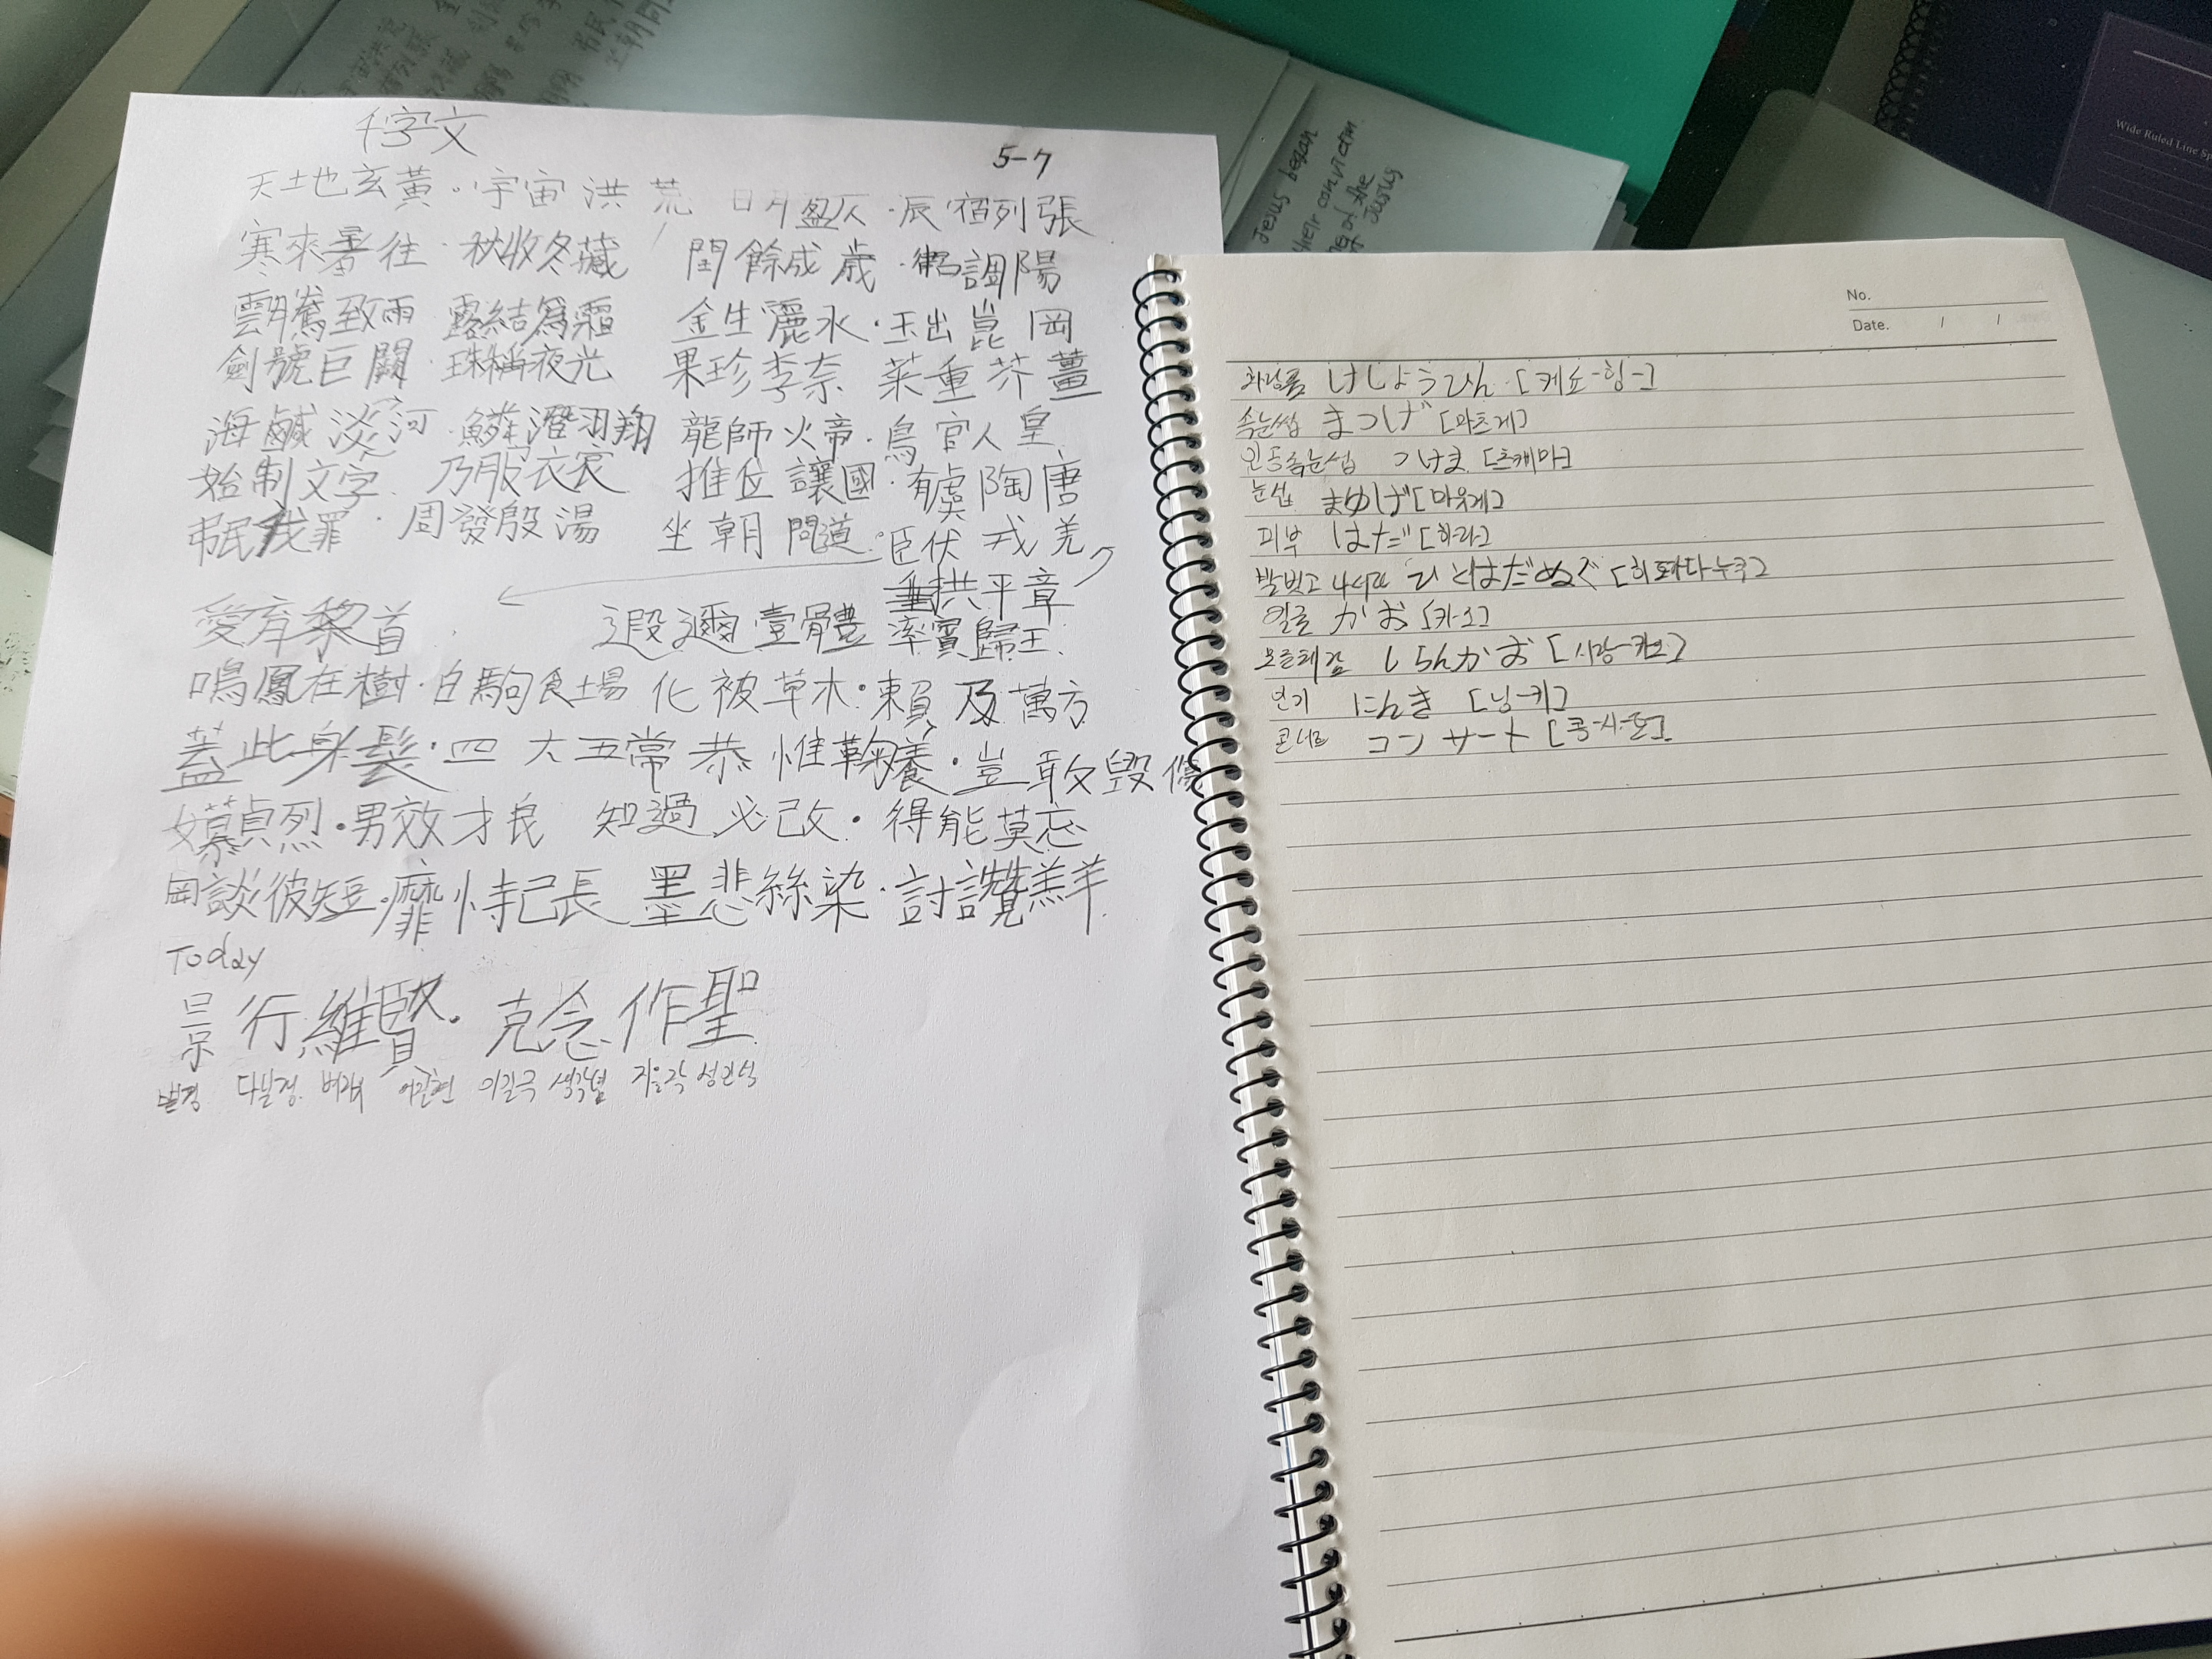 千字文
5-7
天地玄黃·宇宙洪荒 日月盈仄·辰宿列張
寒來暑往·秋收冬藏 閏餘成歲·調陽
雲騰致雨 露結爲霜 金生麗水·玉出崑岡
劍號巨闕·珠稱夜光 果珍李奈 菜重芥薑
海鹹淡河 鱗潛羽翔 龍師火帝·鳥官人皇
始制文字 乃服衣裳 推位讓國·有虞陶唐
弔民伐罪·周發殷湯 坐朝問道·臣伏戎羌
垂拱平章
愛育黎首 遐邇壹體 率賓歸王
鳴鳳在樹·白駒食場 化被草木·賴及萬方
蓋此身髮·四大五常 恭惟鞠養·豈敢毀傷
女慕貞烈·男效才良 知過必改·得能莫忘
罔談彼短·靡恃己長 墨悲絲染·羔羊
Today
景行維賢·克念作聖
볕경 다닐행 어질현 이길극 생각념 지을작 성인성
No.
Date. / /
화장품 けしょうひん [케쇼-힝-]
속눈썹 まつげ [마츠게]
속눈썹 つけま [츠케마]
눈썹 まゆげ [마유게]
피부 はだ [하다]
발벗고 나서다 ひとはだぬぐ [히토하다누구]
얼굴 かお [카오]
모른체 함 しらんかお [시랑-카오]
인기 にんき [닝-키]
콘서트 コンサート [콩-사-토]
Jesus began
their conviction
of the
Jesus
Wide Ruled Line